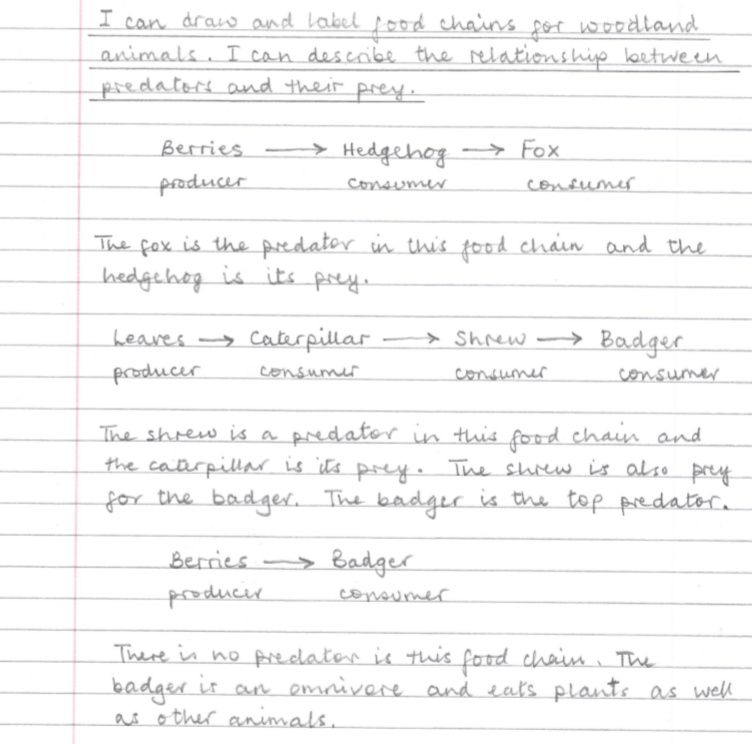 I can draw and label food chains for woodland
animals. I can describe the relationship between
predators and their prey.
Berries → Hedgehog → Fox
producer consumer consumer
The fox is the predator in this food chain and the
hedgehog is its prey.
Leaves → Caterpillar → Shrew → Badger
producer consumer consumer consumer
The shrew is a predator in this food chain and
the caterpillar is its prey. The shrew is also prey
for the badger. The badger is the top predator.
Berries → Badger
producer consumer
There is no predator is this food chain. The
badger is an omnivore and eats plants as well
as other animals.